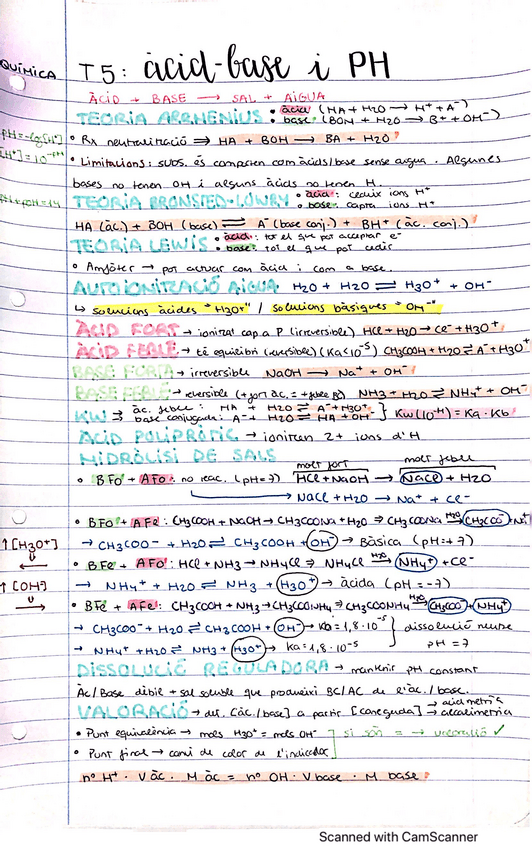 QUÍMICA
T5: àcid-base i PH
ÀCID + BASE → SAL + AIGUA
TEORIA ARRHENIUS • àcid (HA + H2O → H+ + A-)
• base (BOH + H2O → B+ + OH-)
pH = -log[H+]
• Rx neutralització ⇒ HA + BOH → BA + H2O
[H+] = 10-pH
• Limitacions: subs. és comporten com àcids/base sense aigua. Algunes
bases no tenen OH i alguns àcids no tenen H.
pH + pOH = 14
TEORIA BRONSTED-LOWRY • àcid: cedeix ions H+
• base: capta ions H+
HA (àc.) + BOH (base) ⇌ A- (base conj.) + BH+ (àc. conj.)
TEORIA LEWIS • àcid: tot el que pot acceptar e-
• base: tot el que pot cedir
• Amfòter → pot actuar com àcid i com a base.
AUTOIONITZACIÓ AIGUA H2O + H2O ⇌ H3O+ + OH-
↳ solucions àcides "H3O+" / solucions bàsiques "OH-"
ÀCID FORT → ionitzat cap a P (irreversible) HCl + H2O → Cl- + H3O+
ÀCID FEBLE → té equilibri (reversible) (Ka<10-5) CH3COOH + H2O ⇌ A- + H3O+
BASE FORTA → irreversible NaOH → Na+ + OH-
BASE FEBLE → reversible (+fort àc. = +feble B) NH3 + H2O ⇌ NH4+ + OH-
KW ⇒ àc. feble: HA + H2O ⇌ A- + H3O+
base conjugada: A- + H2O ⇌ HA + OH- } Kw(10-14) = Ka · Kb
ÀCID POLIPRÒTIC → ionitzen 2+ ions d'H
HIDRÒLISI DE SALS
molt fort molt feble
• BFo + AFo: no reac. (pH=7) HCl + NaOH → NaCl + H2O
→ NaCl + H2O → Na+ + Cl-
• BFo + AFe: CH3COOH + NaOH → CH3COONa + H2O ⇒ CH3COONa H2O→ CH3COO- + Na+
→ CH3COO- + H2O ⇌ CH3COOH + OH- → Bàsica (pH=+7)
↑[H3O+]
←
• BFe + AFo: HCl + NH3 → NH4Cl ⇒ NH4Cl H2O→ NH4+ + Cl-
↑[OH-]
→
→ NH4+ + H2O ⇌ NH3 + H3O+ → àcida (pH=-7)
• BFe + AFe: CH3COOH + NH3 → CH3COONH4 ⇒ CH3COONH4 H2O→ CH3COO- + NH4+
→ CH3COO- + H2O ⇌ CH3COOH + OH- → Ka = 1,8·10-5 } dissolució neutre
→ NH4+ + H2O ⇌ NH3 + H3O+ → Ka = 1,8·10-5 pH = 7
DISSOLUCIÓ REGULADORA → mantenir pH constant
Àc/Base dèbil + sal soluble que produeixi BC/AC de l'àc./base.
VALORACIÓ → det. [àc/base] a partir [coneguda] → acidimetria
→ alcalimetria
• Punt equivalència → mols H3O+ = mols OH- ] si són = → valoració ✓
• Punt final → canvi de color de l'indicador
nº H+ · V àc · M àc = nº OH · V base · M base
Scanned with CamScanner